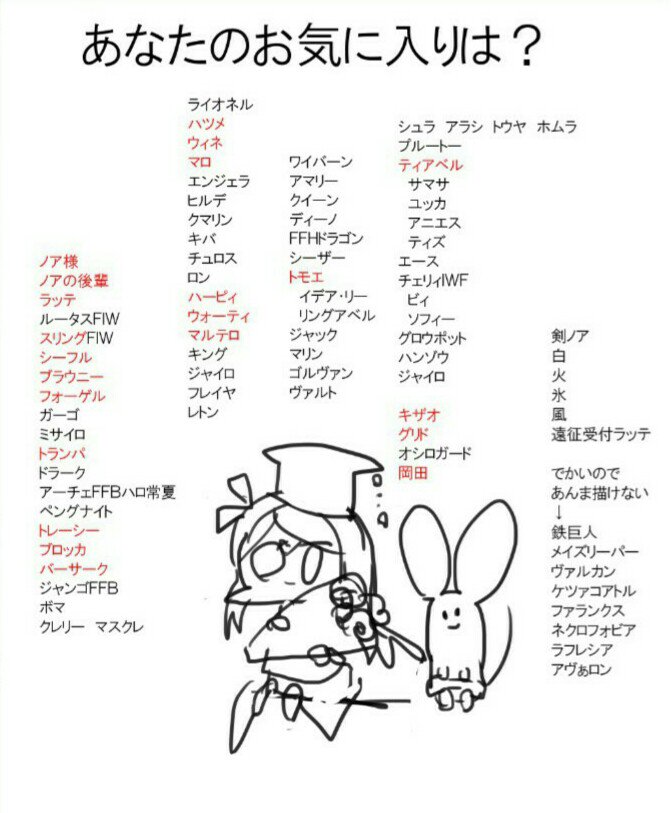 あなたのお気に入りは？
ノア様
ノアの後輩
ラッテ
ルータスFIW
スリングFIW
シーフル
ブラウニー
フォーゲル
ガーゴ
ミサイロ
トランパ
ドラーク
アーチェFFBハロ常夏
ペングナイト
トレーシー
ブロッカ
バーサーク
ジャンゴFFB
ボマ
クレリー マスクレ
ライオネル
ハツメ
ウィネ
マロ
エンジェラ
ヒルデ
クマリン
キバ
チュロス
ロン
ハーピィ
ウォーティ
マルテロ
キング
ジャイロ
フレイヤ
レトン
ワイバーン
アマリー
クイーン
ディーノ
FFHドラゴン
シーザー
トモエ
イデア・リー
リングアベル
ジャック
マリン
ゴルヴァン
ヴァルト
シュラ アラシ トウヤ ホムラ
プルートー
ティアベル
サマサ
ユッカ
アニエス
ティズ
エース
チェリィIWF
ビィ
ソフィー
グロウポット
ハンゾウ
ジャイロ
キザオ
グリド
オシロガード
岡田
剣ノア
白
火
氷
風
遠征受付ラッテ
でかいので
あんま描けない
↓
鉄巨人
メイズリーパー
ヴァルカン
ケツァコアトル
ファランクス
ネクロフォビア
ラフレシア
アヴぁロン